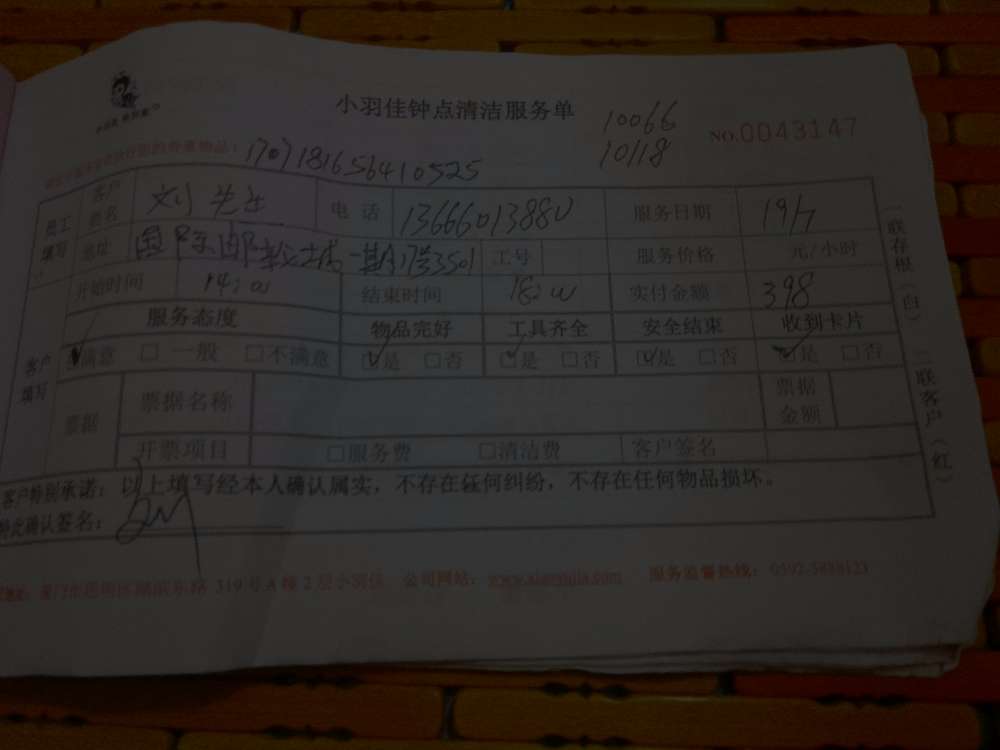 小羽佳钟点清洁服务单
10066
10118
NO.0043147
17071816564410525
员工填写 客户姓名 刘先生 电话 13666013880 服务日期 19/7
地址 国际邮轮城一期 3501 工号 服务价格 元/小时
开始时间 14:00 结束时间 18:00 实付金额 398
客户填写 服务态度 物品完好 工具齐全 安全结束 收到卡片
☑满意 □一般 □不满意 ☑是 □否 ☑是 □否 ☑是 □否 ☑是 □否
票据 票据名称 票据金额
开票项目 □服务费 □清洁费 客户签名
客户特别承诺：以上填写经本人确认属实，不存在任何纠纷，不存在任何物品损坏。
特此确认签名：
319号A幢2层小羽佳 公司网站： 服务监督热线：0592-5888123
一联存根（白） 二联客户（红）